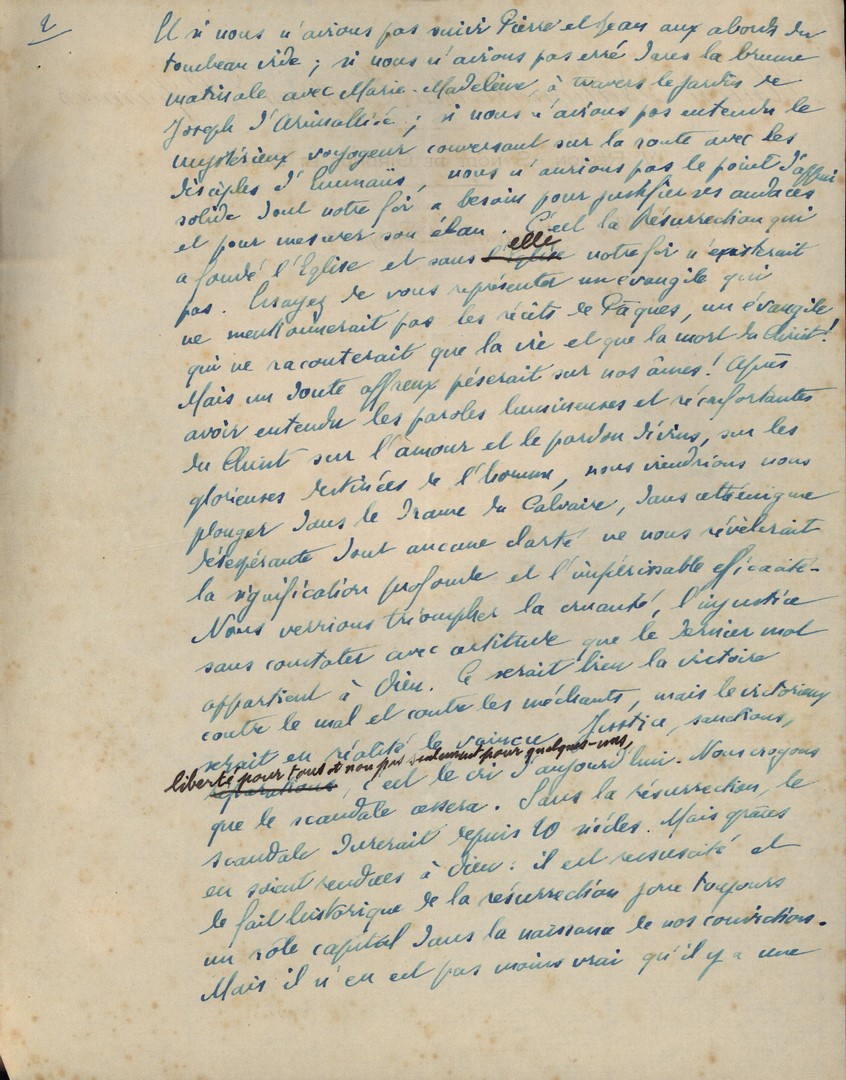 2
Et si nous n'avions pas suivi Pierre et Jean aux abords du
tombeau vide ; si nous n'avions pas erré dans la brume
matinale avec Marie-Madeleine, à travers le jardin de
Joseph d'Arimathée ; si nous n'avions pas entendu le
mystérieux voyageur conversant sur la route avec les
disciples d'Emmaüs, nous n'aurions pas le point d'appui
solide dont notre foi a besoin pour justifier ses audaces
et pour mesurer son élan. C'est la Résurrection qui
elle
a fondé l'Eglise et sans l'Eglise notre foi n'existerait
pas. Essayez de vous représenter un évangile qui
ne mentionnerait pas les récits de Pâques, un évangile
qui ne raconterait que la vie et que la mort du Christ !
Mais un doute affreux pèserait sur nos âmes ! Après
avoir entendu les paroles lumineuses et réconfortantes
du Christ sur l'amour et le pardon divins, sur les
glorieuses destinées de l'homme, nous viendrions nous
plonger dans le drame du Calvaire, dans cette énigme
désespérante dont aucune clarté ne nous révèlerait
la signification profonde et l'impérissable efficacité.
Nous verrions triompher la cruauté, l'injustice
sans constater avec certitude que le dernier mot
appartient à Dieu. Ce serait bien la victoire
contre le mal et contre les méchants, mais le victorieux
serait en réalité le vaincu. Justice, sanctions,
liberté pour tous et non pas seulement pour quelques-uns,
réparations, c'est le cri d'aujourd'hui. Nous croyons
que le scandale cessera. Sans la résurrection, le
scandale durerait depuis 20 siècles. Mais grâces
en soient rendues à Dieu : il est ressuscité et
le fait historique de la résurrection joue toujours
un rôle capital dans la naissance de nos convictions.
Mais il n'en est pas moins vrai qu'il y a une